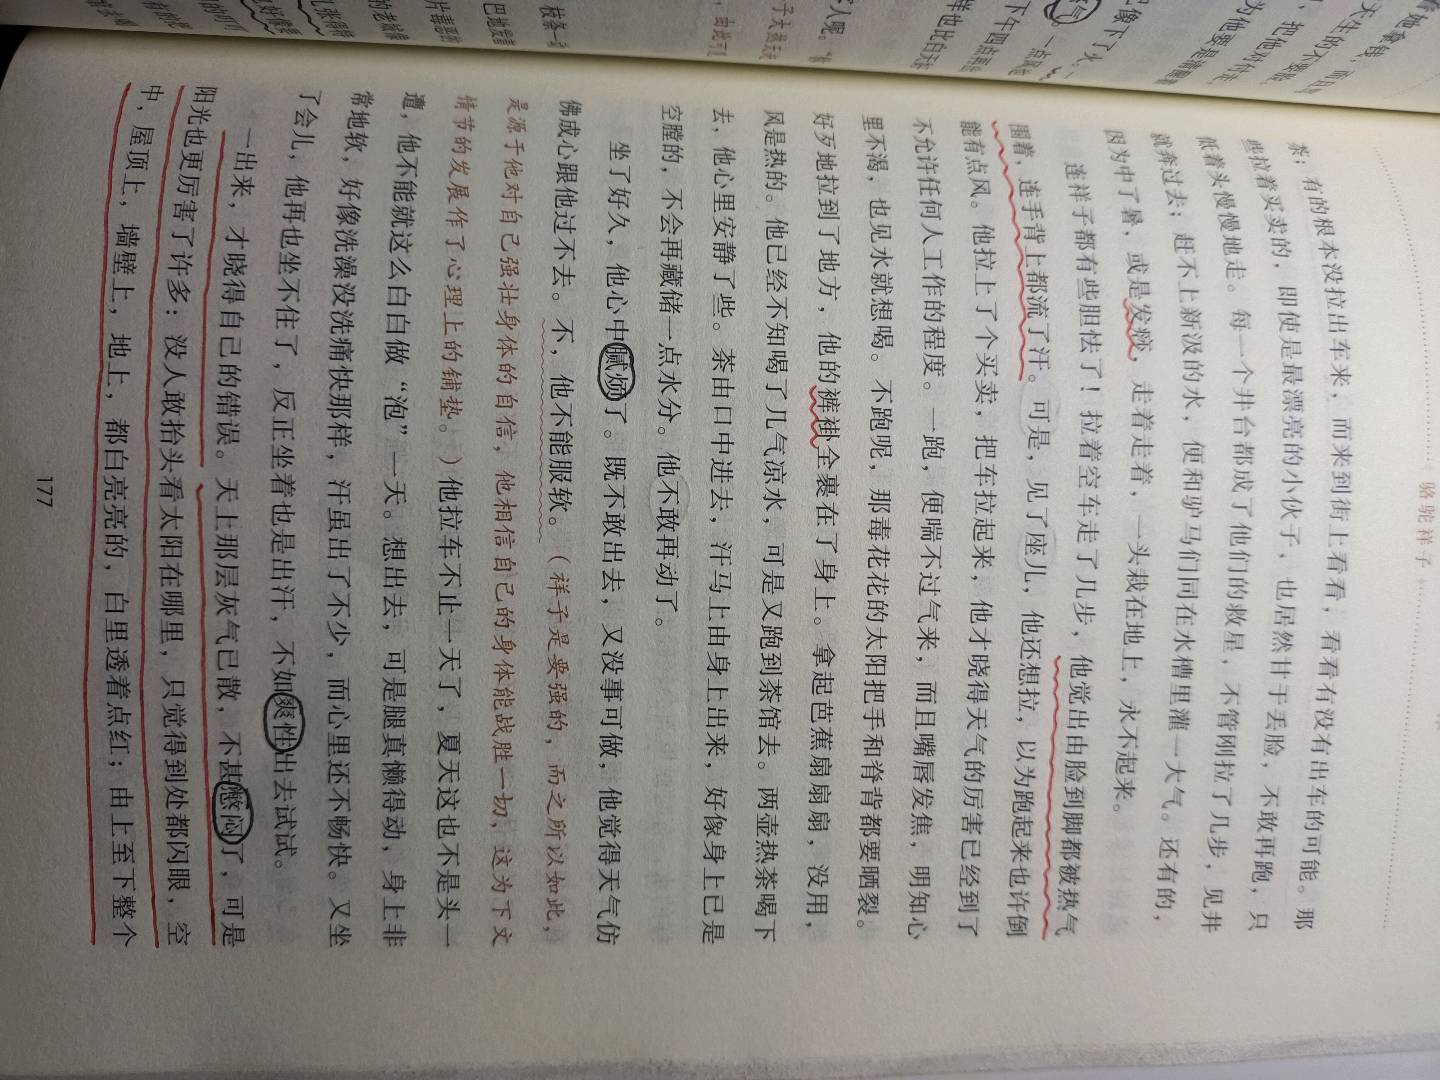 骆驼祥子
茶；有的根本没拉出车来，而来到街上看看，看看有没有出车的可能。那
些拉着买卖的，即使是最漂亮的小伙子，也居然甘于丢脸，不敢再跑，只
低着头慢慢地走。每一个井台都成了他们的救星，不管刚拉了几步，见井
就奔过去；赶不上新汲的水，便和驴马们同在水槽里灌一大气。还有的，
因为中了暑，或是发痧，走着走着，一头栽在地上，永不起来。
连祥子都有些胆怯了！拉着空车走了几步，他觉出由脸到脚都被热气
围着，连手背上都流了汗。可是，见了座儿，他还想拉，以为跑起来也许倒
能有点风。他拉上了个买卖，把车拉起来，他才晓得天气的厉害已经到了
不允许任何人工作的程度。一跑，便喘不过气来，而且嘴唇发焦，明知心
里不渴，也见水就想喝。不跑呢，那毒花花的太阳把手和脊背都要晒裂。
好歹地拉到了地方，他的裤褂全裹在了身上。拿起芭蕉扇扇扇，没用，
风是热的。他已经不知喝了几气凉水，可是又跑到茶馆去。两壶热茶喝下
去，他心里安静了些。茶由口中进去，汗马上由身上出来，好像身上已是
空膛的，不会再藏储一点水分。他不敢再动了。
坐了好久，他心中腻烦了。既不敢出去，又没事可做，他觉得天气仿
佛成心跟他过不去。不，他不能服软。（祥子是要强的，而之所以如此，
是源于他对自己强壮身体的自信，他相信自己的身体能战胜一切，这为下文
情节的发展作了心理上的铺垫。）他拉车不止一天了，夏天这也不是头一
遭，他不能就这么白白做“泡”一天。想出去，可是腿真懒得动，身上非
常地软，好像洗澡没洗痛快那样，汗虽出了不少，而心里还不畅快。又坐
了会儿，他再也坐不住了，反正坐着也是出汗，不如爽性出去试试。
一出来，才晓得自己的错误。天上那层灰气已散，不甚憋闷了，可是
阳光也更厉害了许多：没人敢抬头看太阳在哪里，只觉得到处都闪眼，空
中，屋顶上，墙壁上，地上，都白亮亮的，白里透着点红；由上至下整个
177